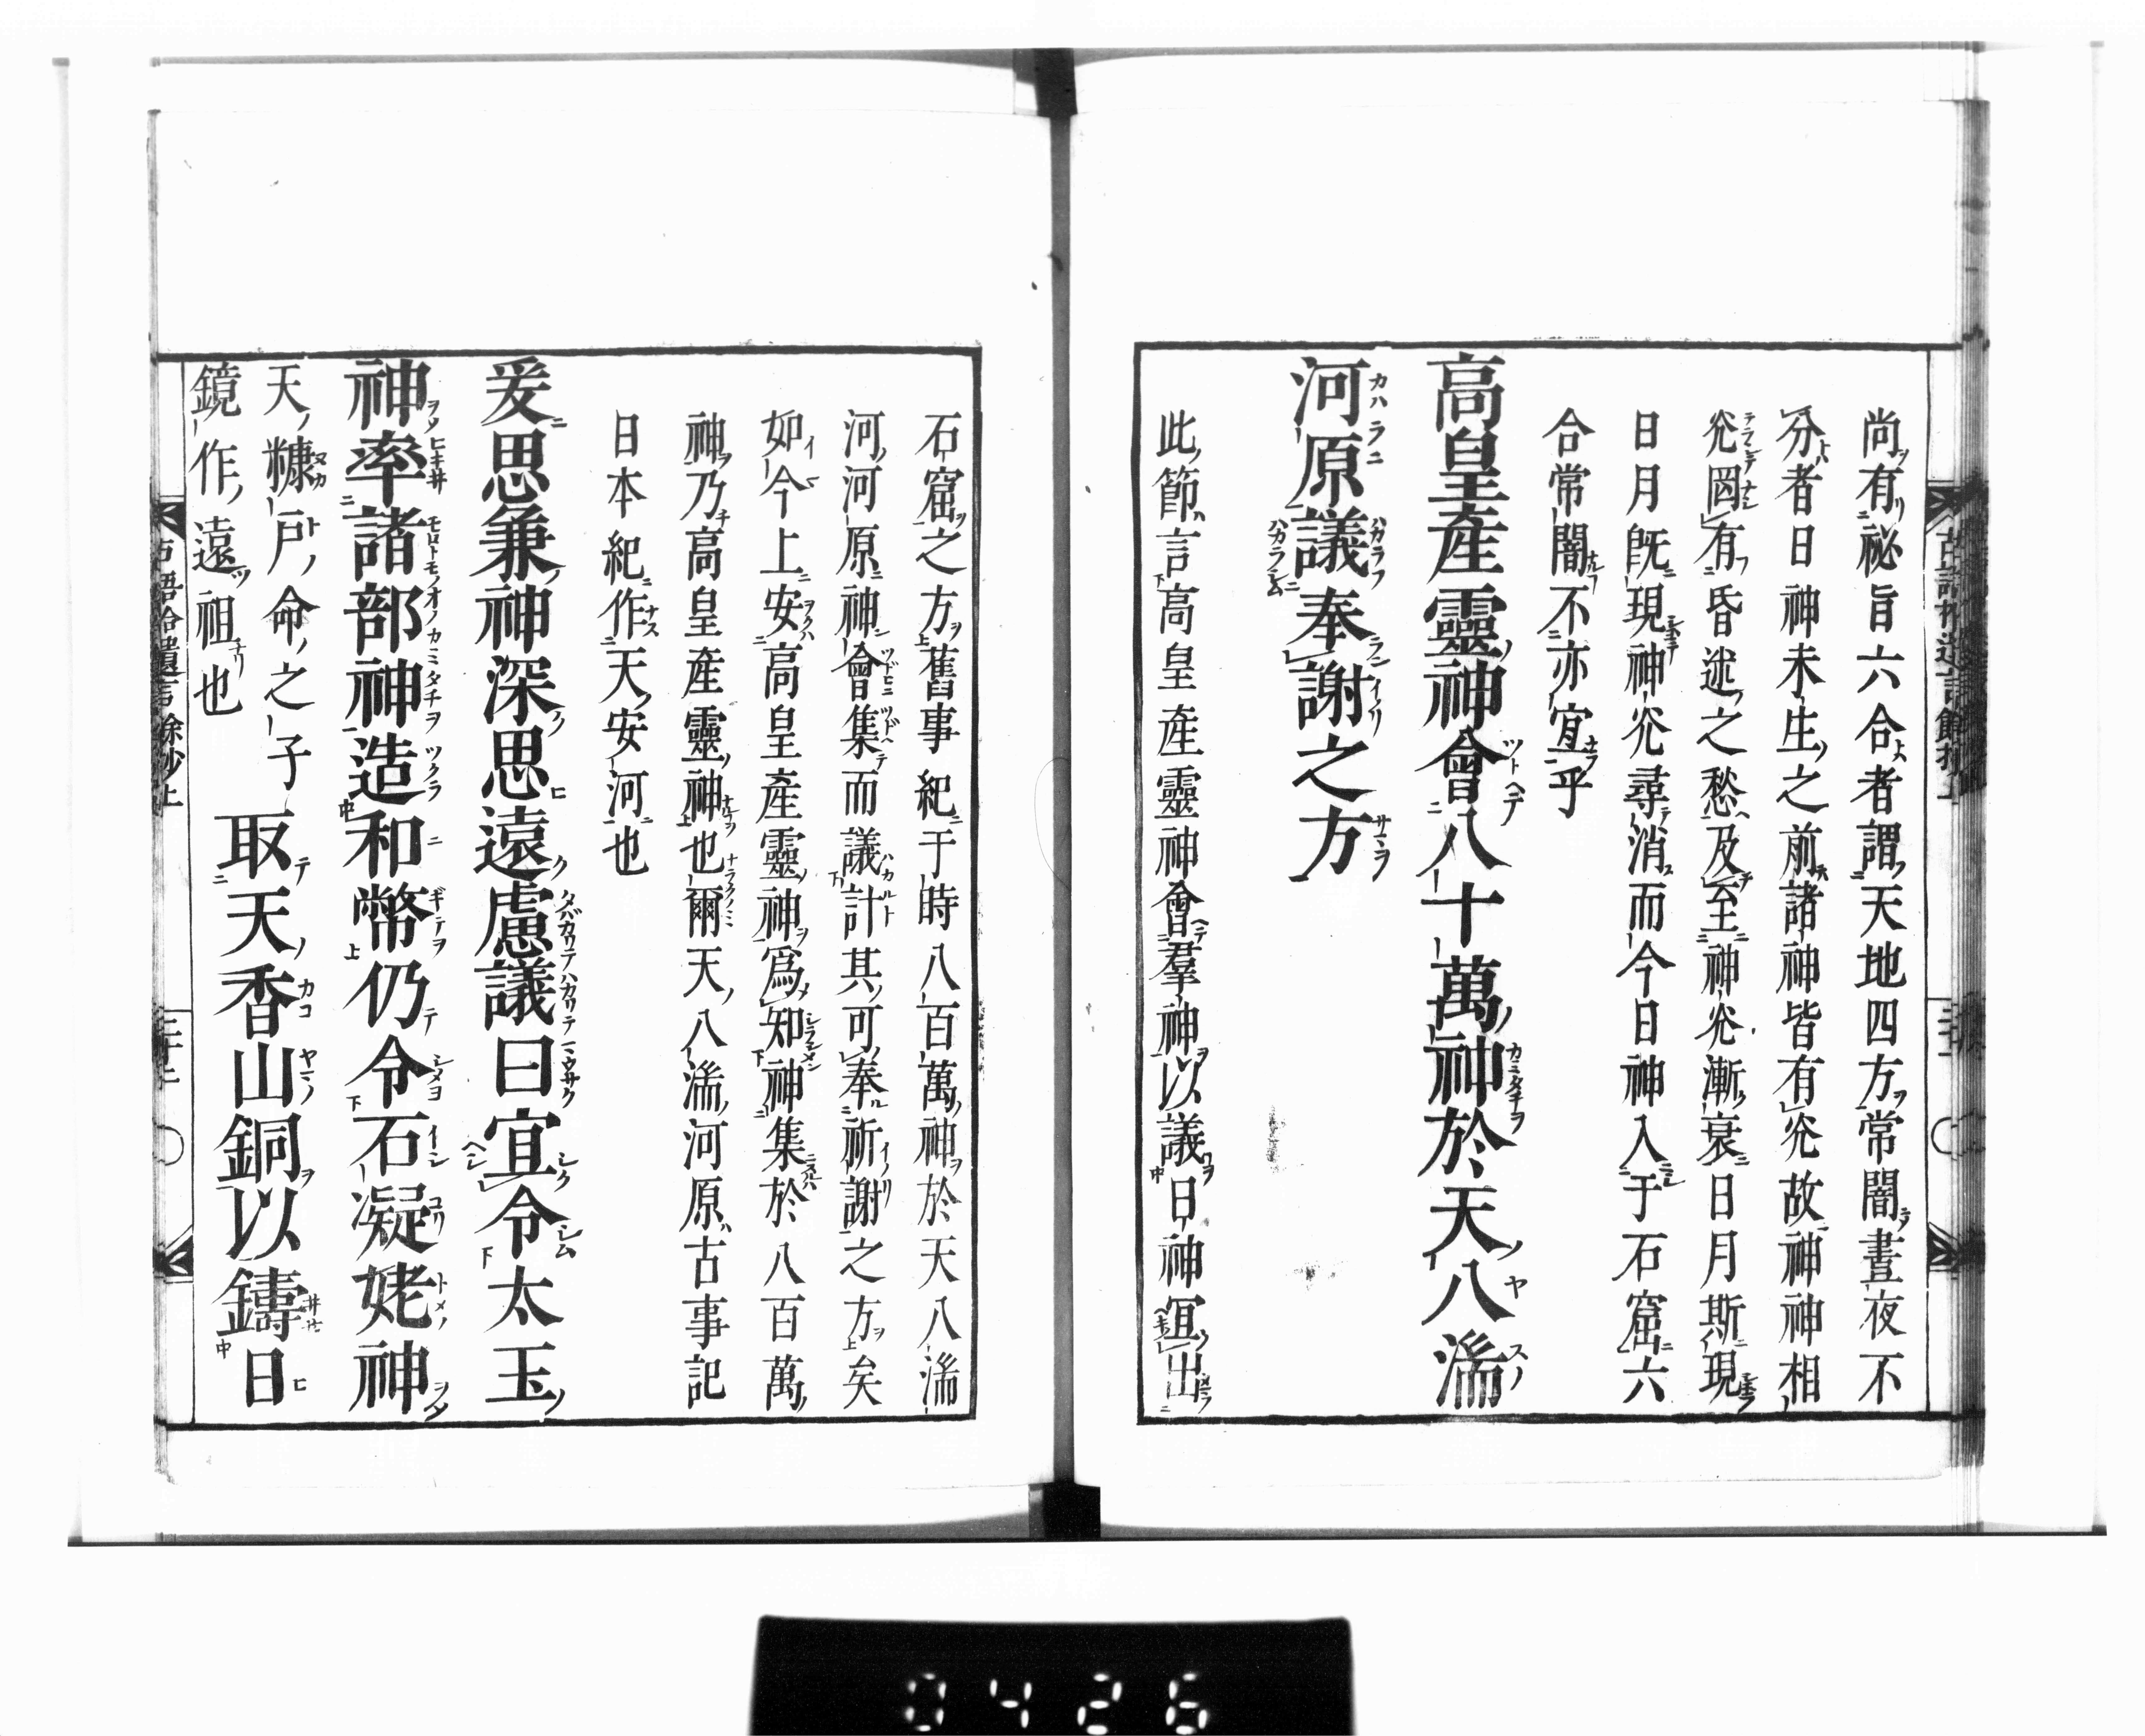 尚有祕旨六合者謂天地四方常闇晝夜不
分者日神未生之前諸神皆有光故神神相
光罔有昏迷之愁及至神光漸衰日月斯現
日月旣現神光尋消而今日神入于石窟六
合常闇不亦宜乎
高皇產靈神會八十萬神於天八湍
河原議奉謝之方
此節言高皇產靈神會羣神以議日神宜出
石窟之方舊事紀于時八百萬神於天八湍
河河原神會集而議計其可奉祈謝之方矣
如今上安高皇產靈神爲知神集於八百萬
神乃高皇產靈神也爾天八湍河原古事記
日本紀作天安河也
爰思兼神深思遠慮議曰宜令太玉
神率諸部神造和幣仍令石凝姥神
天糠戶命之子
鏡作遠祖也
取天香山銅以鑄日
古語拾遺言餘抄上
三十二
0426